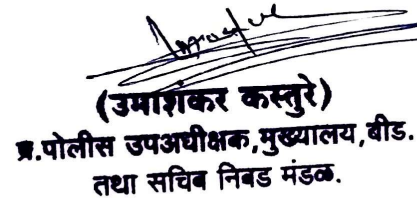 (उमाशंकर कस्तुरे)
प्र.पोलीस उपअधीक्षक,मुख्यालय,बीड.
तथा सचिव निवड मंडळ.